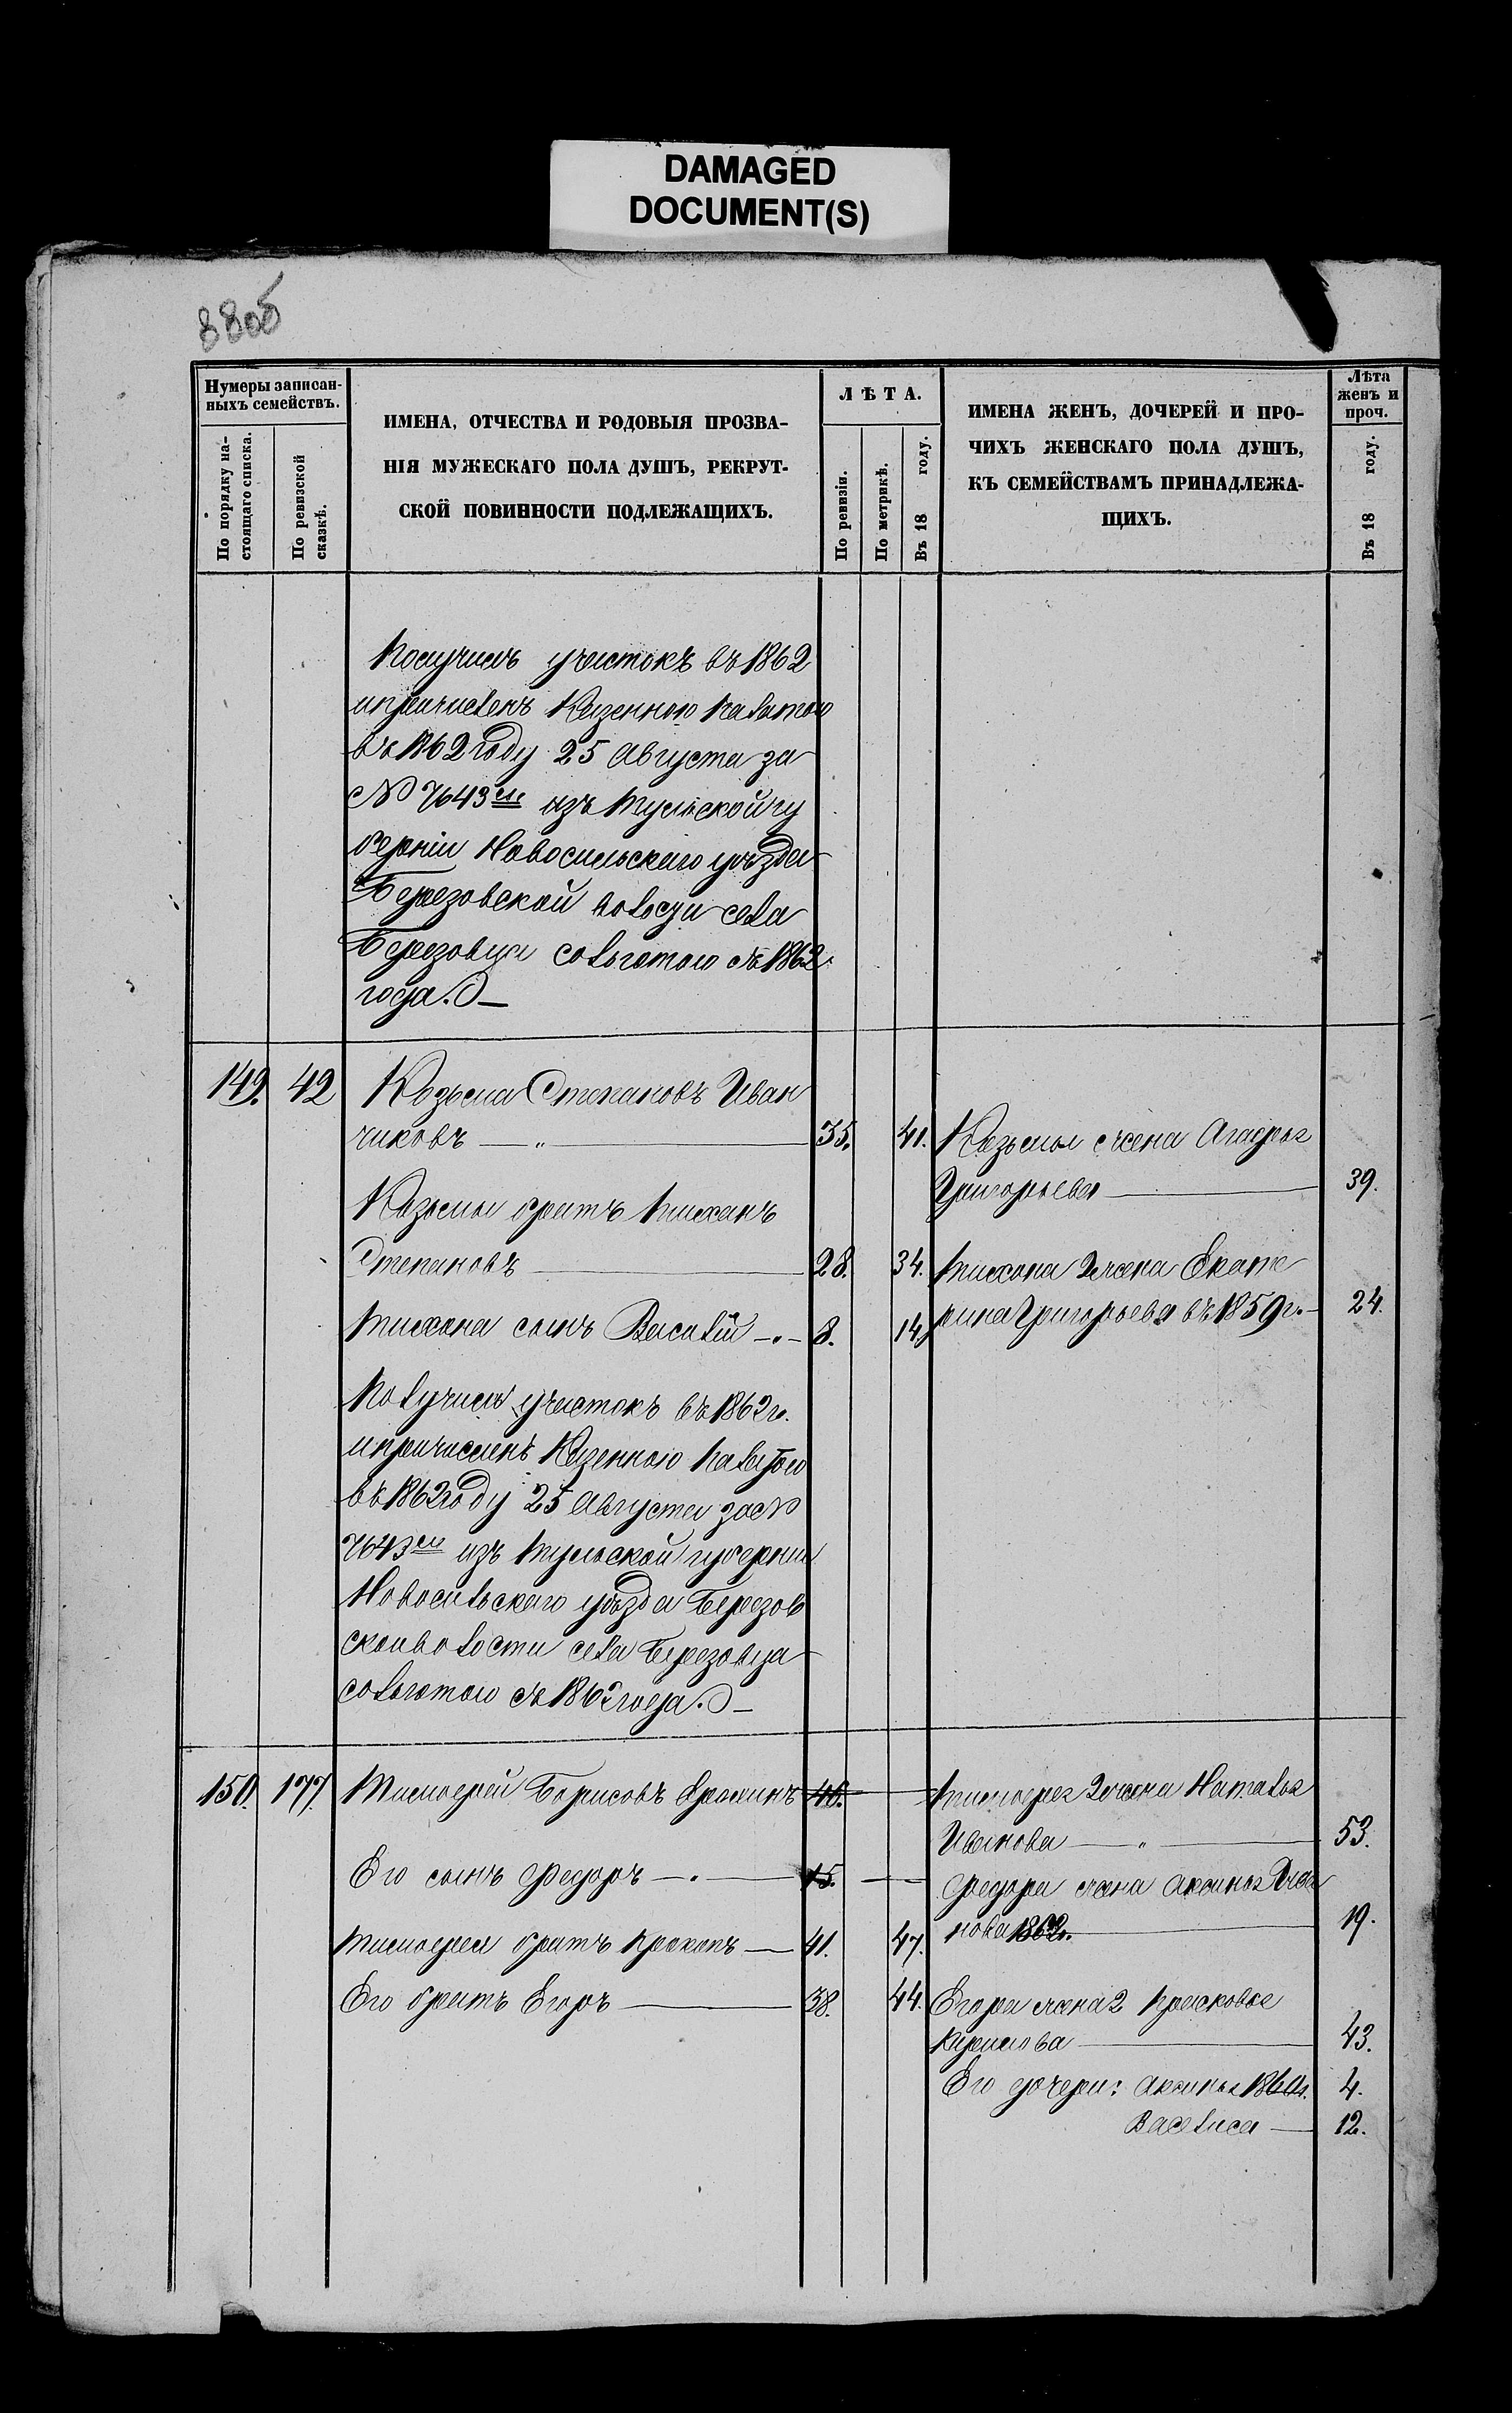 DAMAGED
DOCUMENT(S)
88об
Нумеры записан-
ныхъ семействъ.
По порядку на-
стоящаго списка.
По ревизской
сказкѣ.
ИМЕНА, ОТЧЕСТВА И РОДОВЫЯ ПРОЗВА-
НІЯ МУЖЕСКАГО ПОЛА ДУШЪ, РЕКРУТ-
СКОЙ ПОВИННОСТИ ПОДЛЕЖАЩИХЪ.
ЛѢТА.
По ревизіи.
По метрикѣ.
Въ 18 году.
ИМЕНА ЖЕНЪ, ДОЧЕРЕЙ И ПРО-
ЧИХЪ ЖЕНСКАГО ПОЛА ДУШЪ,
КЪ СЕМЕЙСТВАМЪ ПРИНАДЛЕЖА-
ЩИХЪ.
Лѣта
женъ и
проч.
Въ 18 году.
Получилъ участокъ въ 1862
и причисленъ Казенною палатою
въ 1862 году 25 Августа за
№ 7643м изъ Тульской гу
берніи Новосильскаго уѣзда
Березовской волости села
Березовца со льготою съ 1862
года.
149. 42 Козьма Степановъ Иван
чиковъ — „ — 35. 41. Козьмы жена Агафья
Григорьева — 39.
Козьмы братъ Тиханъ
Степановъ — 28. 34. Тихона 2 жена Екате
рина Григорьева въ 1859 г. — 24.
Тихона сынъ Василій — 8. 14.
Получилъ участокъ въ 1862 г.
и причисленъ Казенною Палатою
въ 1862 году 25 Августа за №
7643м изъ Тульской губерніи
Новосильскаго уѣзда Березов
ской волости села Березовца
со льготою съ 1862 года.
150. 177. Тимоѳей Борисовъ 46. — Тимоѳея 2 жена Наталья
Иванова — „ — 53.
Его сынъ Федоръ — 15. — Федора жена Аксинья Ива
нова 1862 г. — 19.
Тимоѳея братъ Прокопъ — 41. 47.
Его братъ Егоръ — 38. 44. Егора жена 2 Прасковья
— 43.
Его дочери: Аксинья 4.
Васелиса — 12.